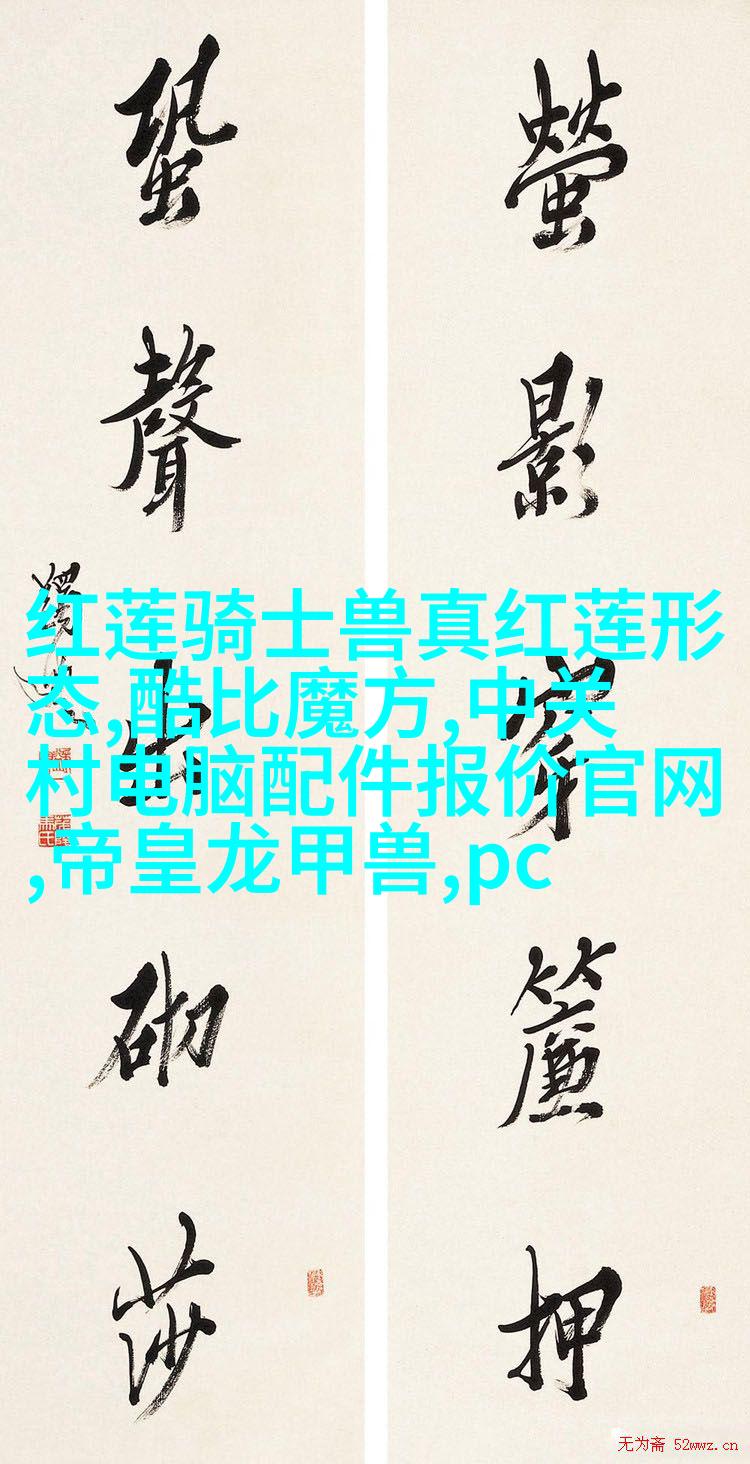 螢影穿簾押
蛩聲出砌莎
红莲骑士兽真红莲形
态,酷比魔方,中关
村电脑配件报价官网
,帝皇龙甲兽,pc
无为斋 52wwz.cn